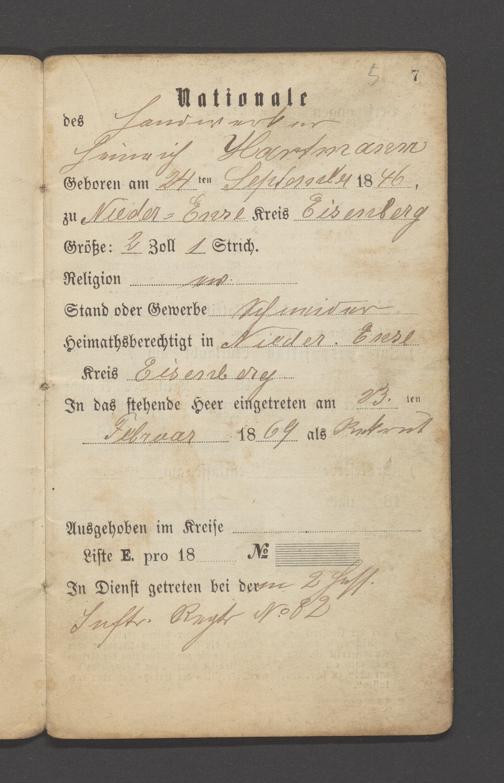 5 7
Nationale
des Handwerker
Heinrich Hartmann
Geboren am 24 ten September 1846.
zu Nieder-Ense Kreis Eisenberg
Größe: 2 Zoll 1 Strich.
Religion ev.
Stand oder Gewerbe Schneider
Heimathsberechtigt in Nieder. Ense
Kreis Eisenberg
In das stehende Heer eingetreten am 23. ten
Februar 1869 als Rekrut
Ausgehoben im Kreise
Liste E. pro 18 №
In Dienst getreten bei dem 2 Hess.
Inftr. Regtr No 82